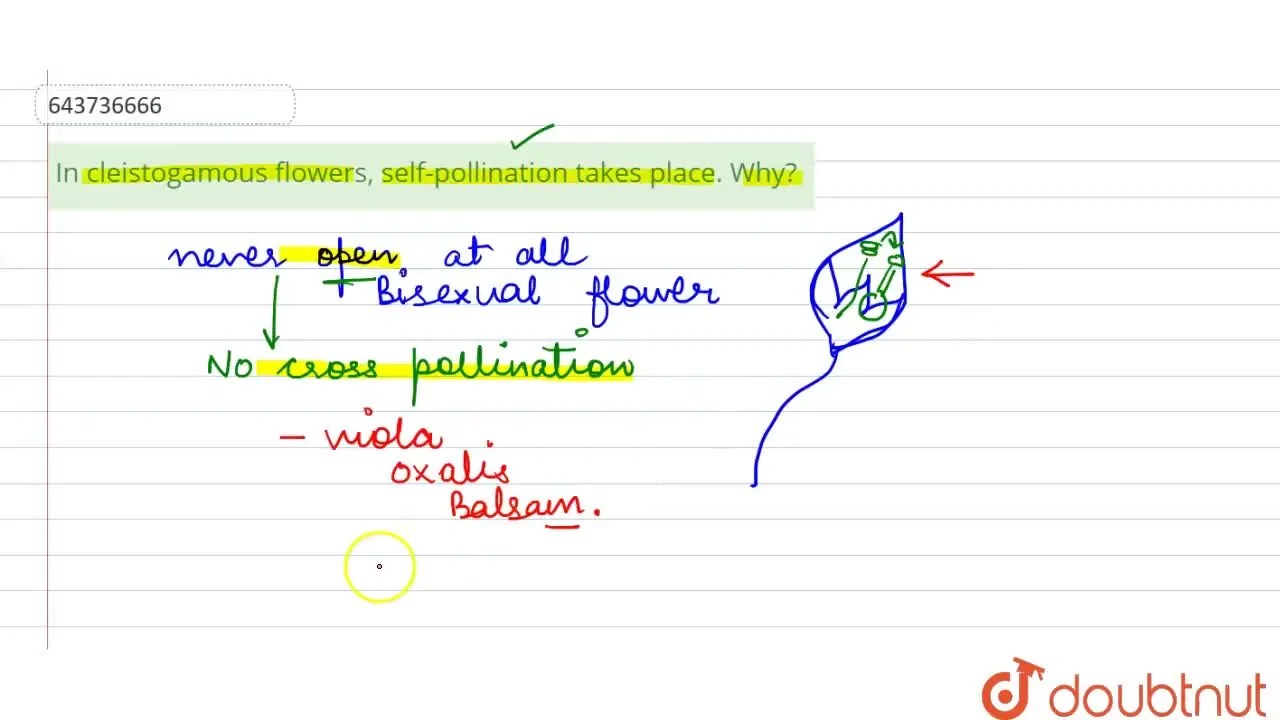 643736666
In cleistogamous flowers, self-pollination takes place. Why?
never open at all
Bisexual flower
No cross pollination
- viola
oxalis
Balsam.
doubtnut